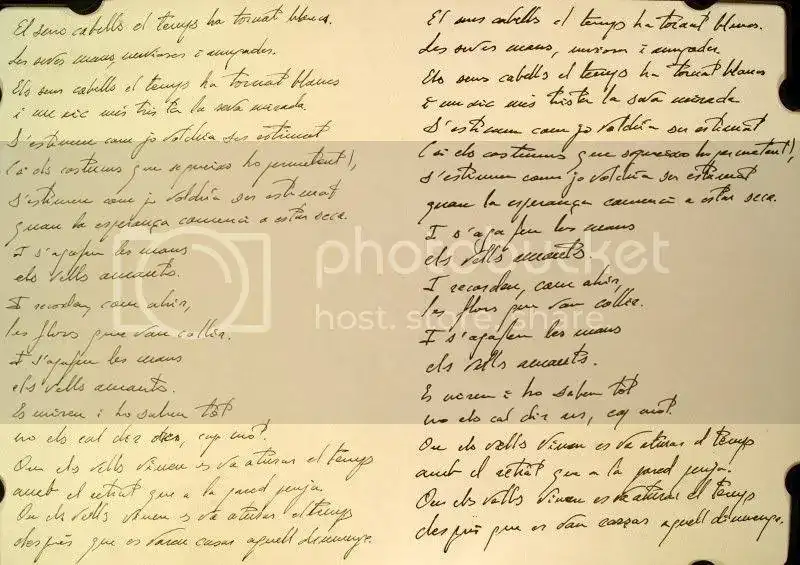 El seus cabells el temps ha tornat blancs.
Les seves mans nervioses i arrugades.
Els seus cabells el temps ha tornat blancs
i un xic més trista la seva mirada.
S'estimen com jo voldria ser estimat
(si els costums que segueixo ho permetent),
S'estimen com jo voldria ser estimat
quan la esperança comença a estar seca.
I s'agafen les mans
els vells amants.
I recorden, com ahir,
les flors que van collir.
I s'agafen les mans
els vells amants.
Es miren i ho saben tòt
no els cal dir, cap mòt.
On els vells viuen es va aturar el temps
amb el retrat que a la pared penja.
On els vells viuen es va aturar el temps
després que es varen casar aquell diumenge.
El seus cabells el temps ha tornat blancs.
Les seves mans, nervioses i arrugades
Els seus cabells el temps ha tornat blancs
i un xic més trista la seva mirada
S'estimen com jo voldria ser estimat
(si els costums que segueixo ho permetent),
S'estimen com jo voldria ser estimat
quan la esperança comença a estar seca.
I s'agafen les mans
els vells amants.
I recorden, com ahir,
les flors que van collir.
I s'agafen les mans
els vells amants.
Es miren i ho saben tòt
no els cal dir res, cap mòt.
On els vells viuen es va aturar el temps
amb el retrat que a la pared penja.
On els vells viuen es va aturar el temps
després que es van casar aquell diumenge.
photobucket
host. store. share.